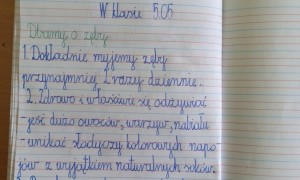 W klasie 5.05
Dbamy o zęby
1. Dokładnie myjemy zęby
przynajmniej 2 razy dziennie.
2. Zdrowo i właściwe się odżywiać
- jeść dużo owoców, warzyw, nabiału
- unikać słodyczy kolorowych napo
jów z wyjątkiem naturalnych soków.